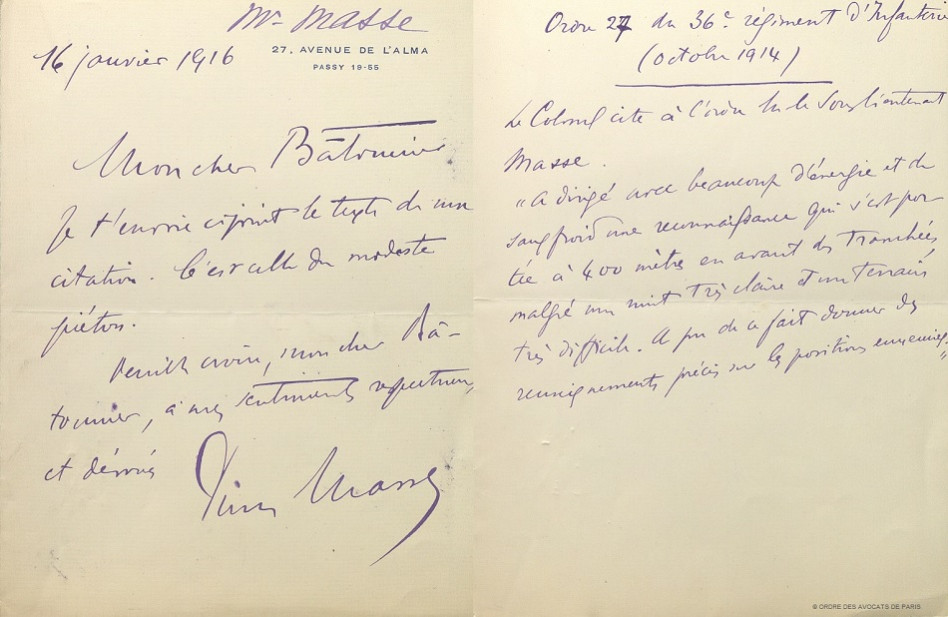 Mr Masse
16 janvier 1916
27, AVENUE DE L'ALMA
PASSY 19-55
Mon cher Bâtonnier
Je t'envoie ci joint le texte de ma
citation. C'est celle du modeste
piéton.
Veuillez croire, mon cher Bâ-
tonnier, à mes sentiments respectueux
et dévoués
Masse
Ordre 27 du 36e régiment d'Infanterie
(octobre 1914)
Le Colonel cite à l'ordre le Sous lieutenant
Masse.
"A dirigé avec beaucoup d'énergie et de
sang froid une reconnaissance qui s'est por-
tée à 400 mètres en avant des tranchées
malgré une nuit très claire et un terrain
très difficile. A pu de ce fait donner des
renseignements précis sur les positions ennemies."
© ORDRE DES AVOCATS DE PARIS